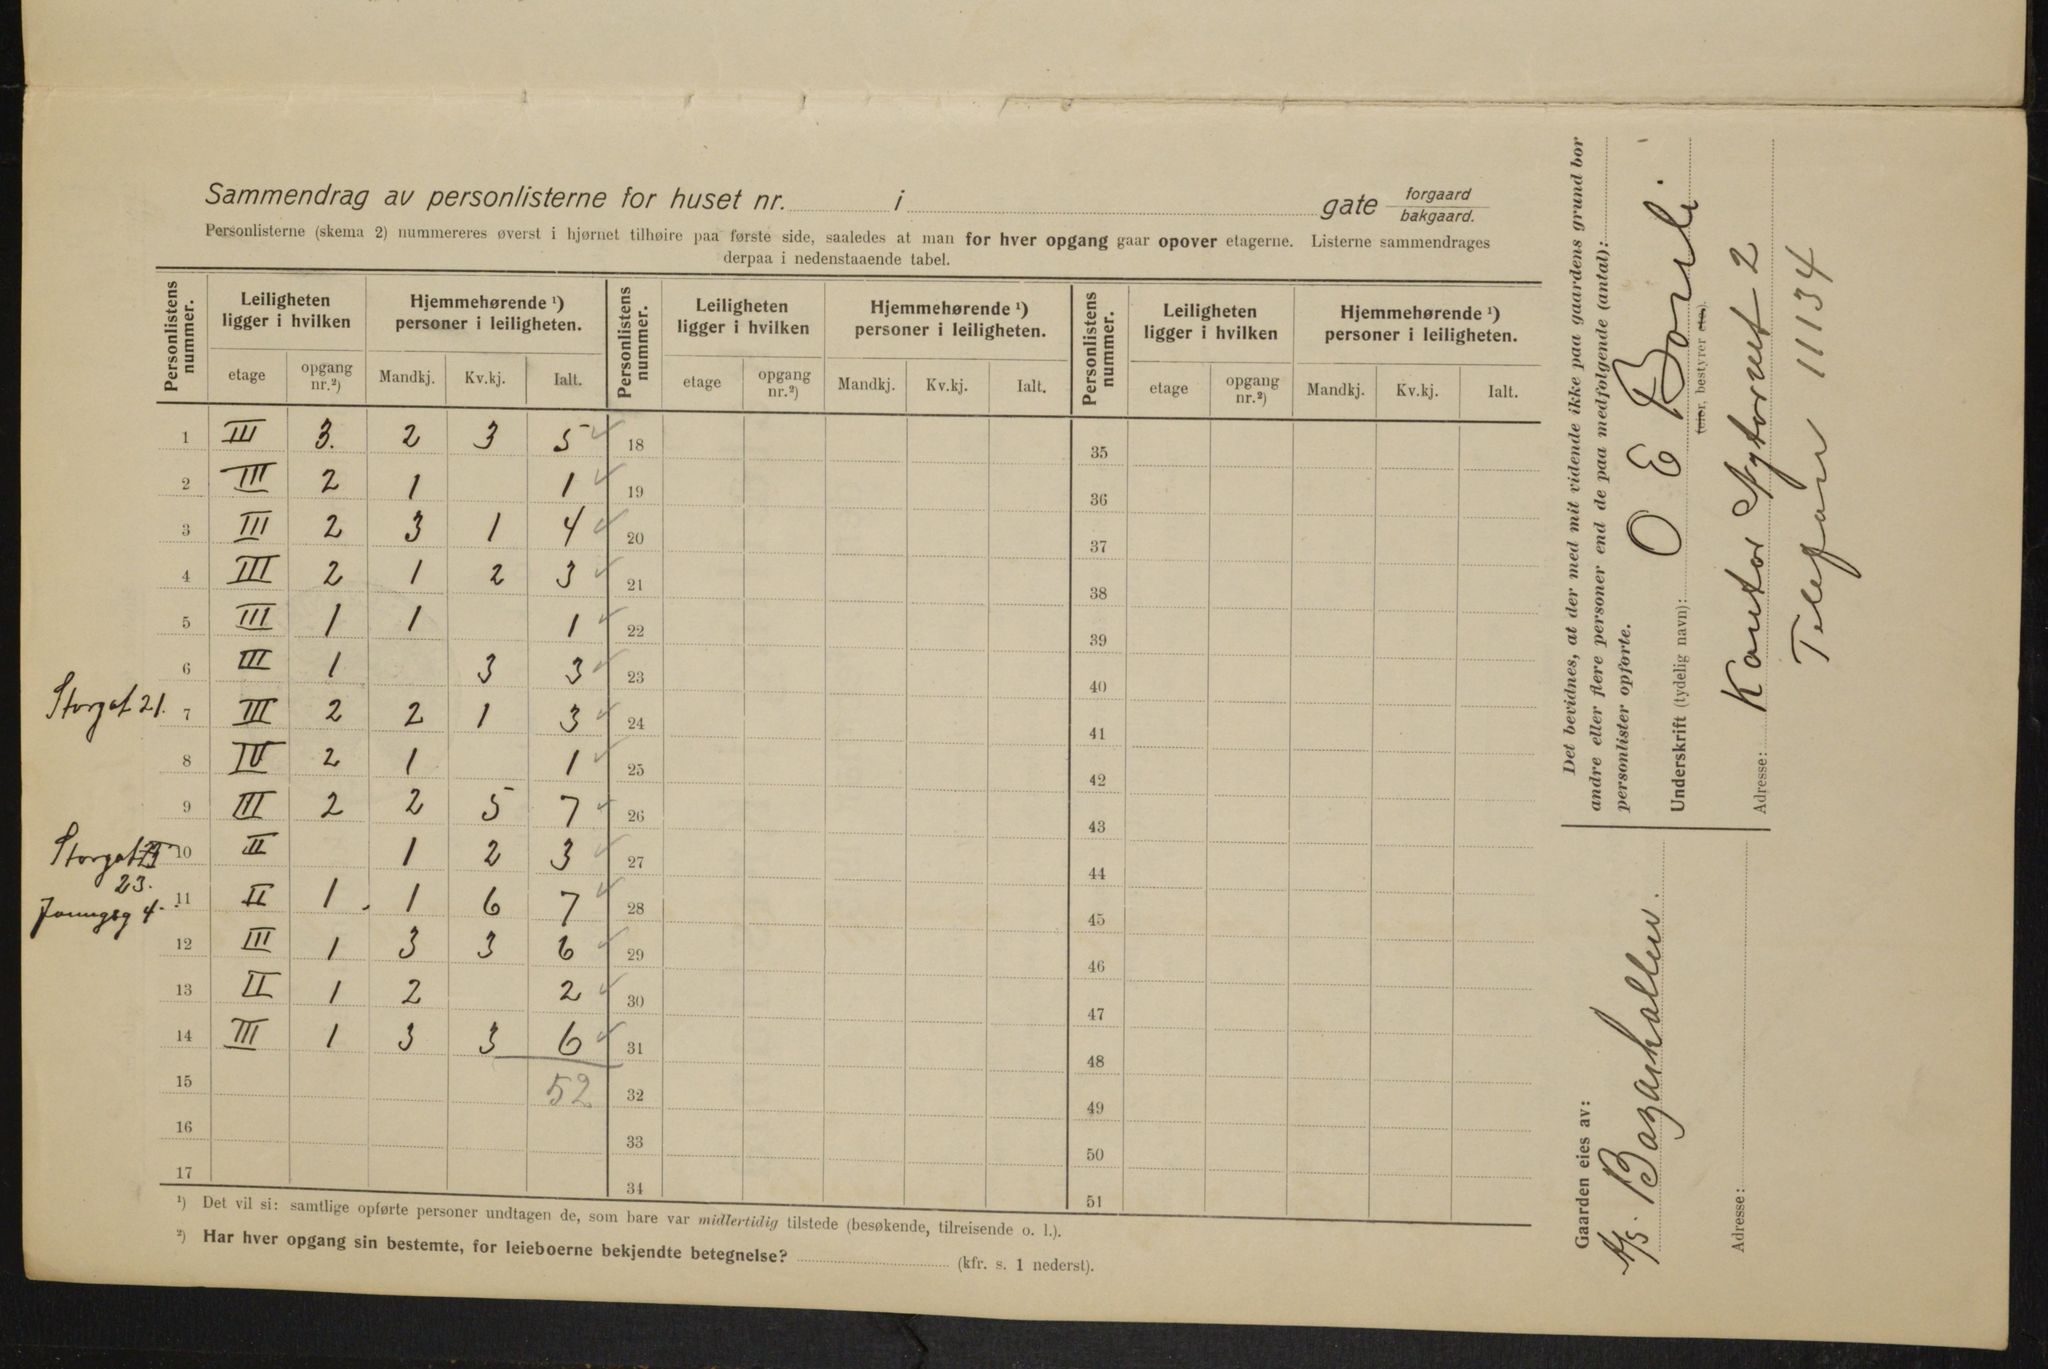 Sammendrag av personlisterne for huset nr. i gate forgaard bakgaard.
Personlisterne (skema 2) nummereres øverst i hjørnet tilhøire paa første side, saaledes at man for hver opgang gaar opover etagerne. Listerne sammendrages
derpaa i nedenstaaende tabel.
Personlistens nummer. Leiligheten ligger i hvilken Hjemmehørende ¹) personer i leiligheten. Personlistens nummer. Leiligheten ligger i hvilken Hjemmehørende ¹) personer i leiligheten. Personlistens nummer. Leiligheten ligger i hvilken Hjemmehørende ¹) personer i leiligheten.
etage opgang nr.²) Mandkj. Kv.kj. Ialt. etage opgang nr.²) Mandkj. Kv.kj. Ialt. etage opgang nr.²) Mandkj. Kv.kj. Ialt.
1 III 3. 2 3 5 18 35
2 III 2 1 1 19 36
3 III 2 3 1 4 20 37
4 III 2 1 2 3 21 38
5 III 1 1 1 22 39
6 III 1 3 3 23 40
Storgat 21. 7 III 2 2 1 3 24 41
8 IV 2 1 1 25 42
9 III 2 2 5 7 26 43
Storgat 10 II 1 2 3 27 44
23.
Youngsg 4. 11 II 1 1 6 7 28 45
12 III 1 3 3 6 29 46
13 II 1 2 2 30 47
14 III 1 3 3 6 31 48
15 52 32 49
16 33 50
17 34 51
¹) Det vil si: samtlige opførte personer undtagen de, som bare var midlertidig tilstede (besøkende, tilreisende o. l.).
²) Har hver opgang sin bestemte, for leieboerne bekjendte betegnelse? (kfr. s. 1 nederst).
Det bevidnes, at der med mit vidende ikke paa gaardens grund bor
andre eller flere personer end de paa medfølgende (antal):
personlister opførte.
Underskrift (tydelig navn): O E Borli.
(eier, bestyrer etc.)
Adresse: Kontor Nytorvet 2
Telefon 11134
Gaarden eies av:
A/S. Bazarhallen.
Adresse: